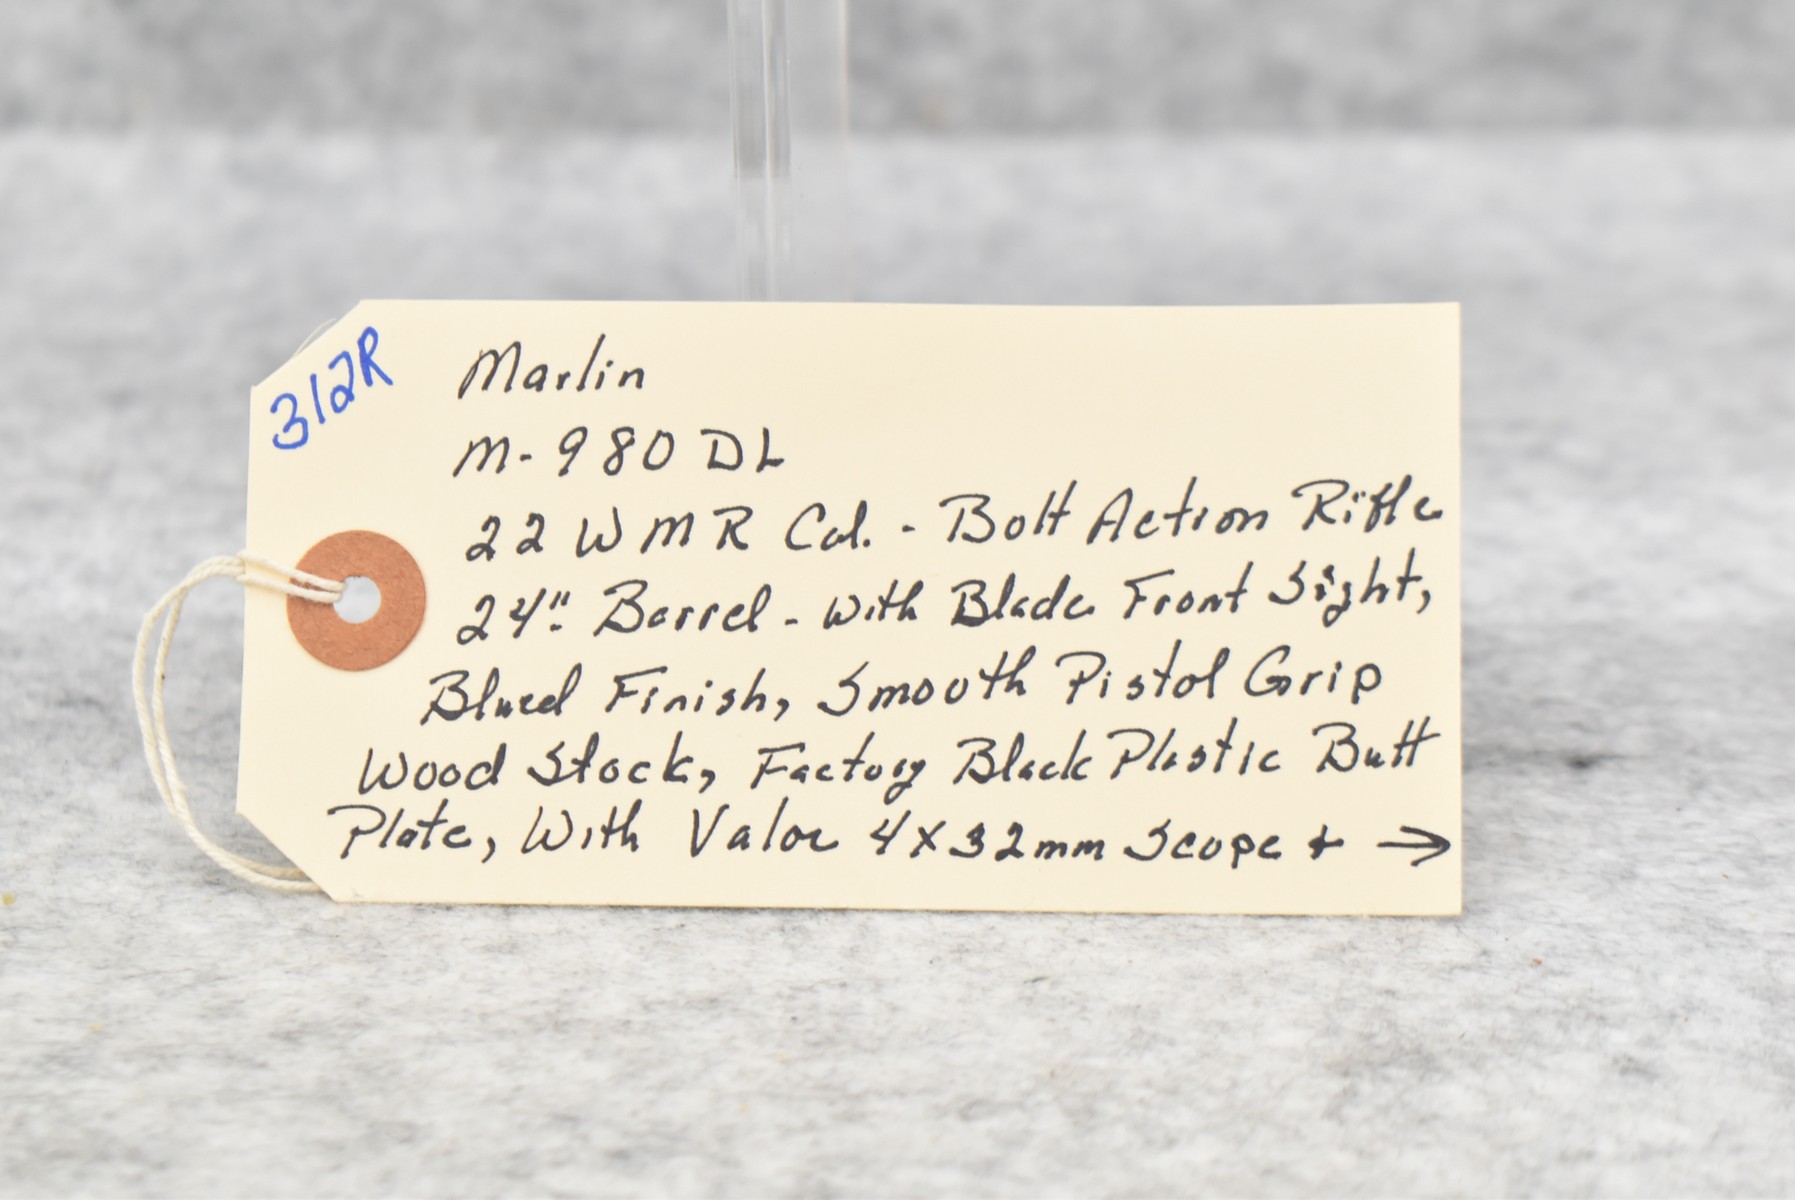 312R
Marlin
M-980 DL
22 WMR Cal. - Bolt Action Rifle
24" Barrel - with Blade Front Sight,
Blued Finish, Smooth Pistol Grip
Wood Stock, Factory Black Plastic Butt
Plate, With Valor 4x32mm Scope + →